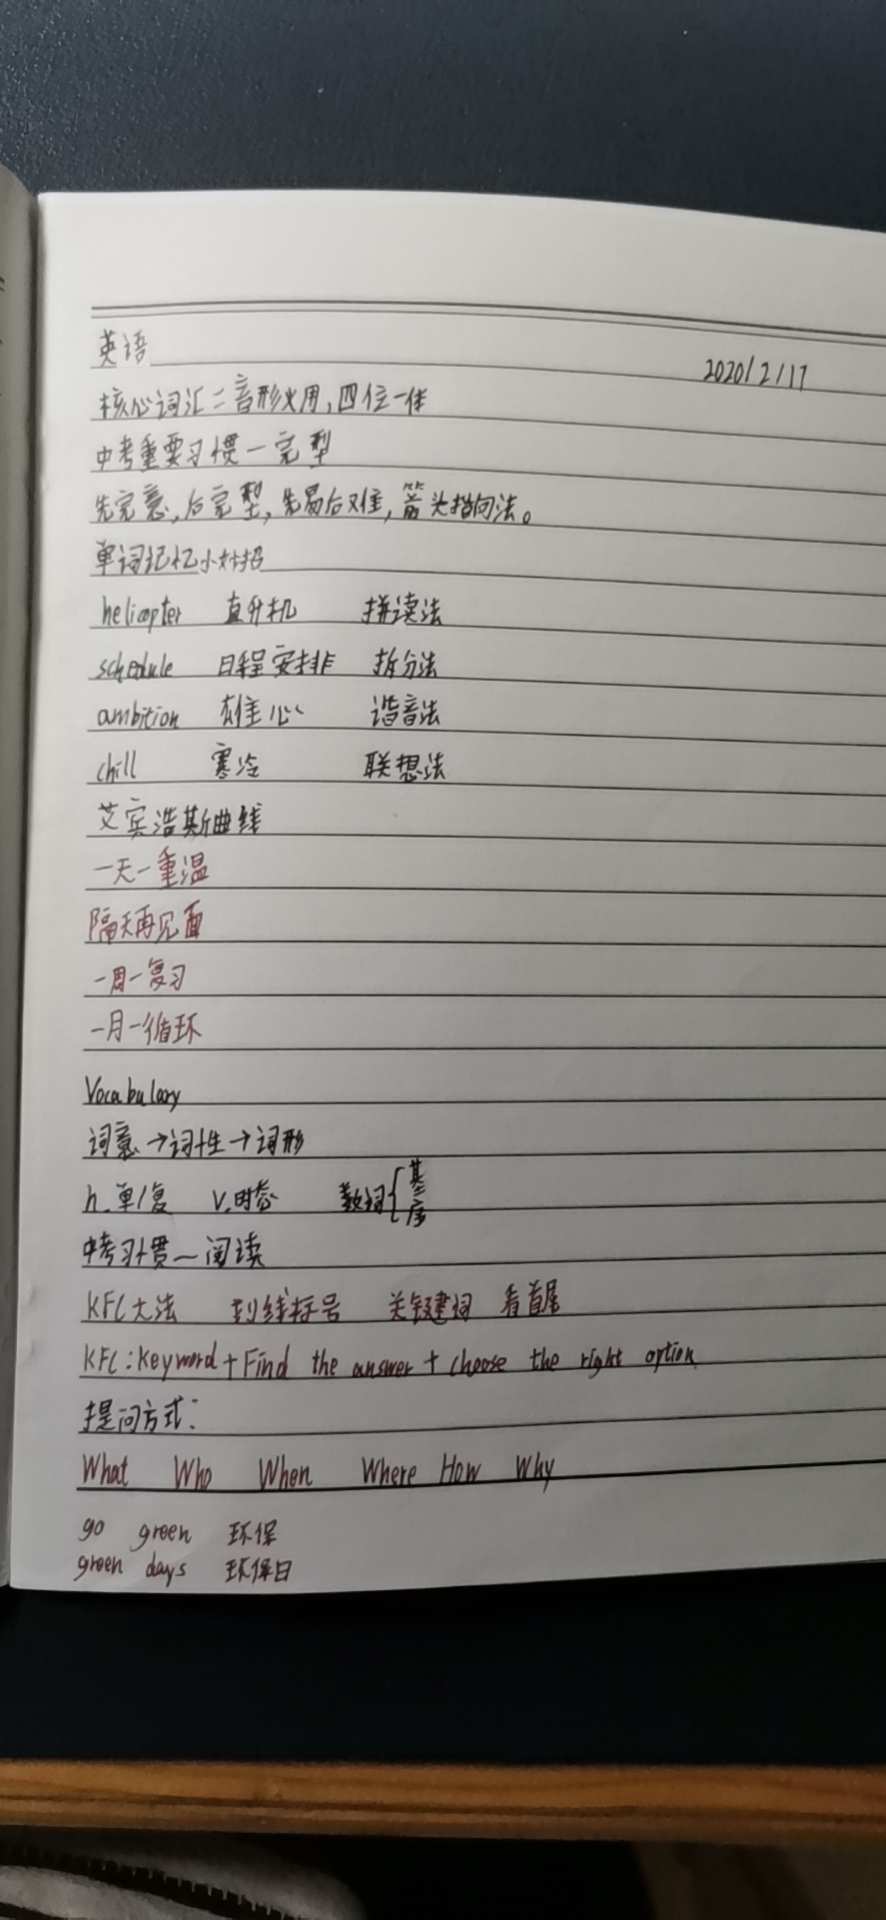 英语
2020/2/17
核心词汇二音形义用,四位一体
中考重要习惯一完型
先完意,后完型,先易后难,箭头指向法。
单词记忆小妙招
helicopter 直升机 拼读法
schedule 日程安排 拆分法
ambition 雄心 谐音法
chill 寒冷 联想法
艾宾浩斯曲线
一天一重温
隔天再见面
一周一复习
一月一循环
Vocabulary
词意→词性→词形
n.单/复 v.时态 数词{基 序
中考习惯一阅读
KFC大法 划线标号 关键词 看首尾
KFC:Keyword+Find the answer+choose the right option
提问方式:
What Who When Where How Why
go green 环保
green days 环保日